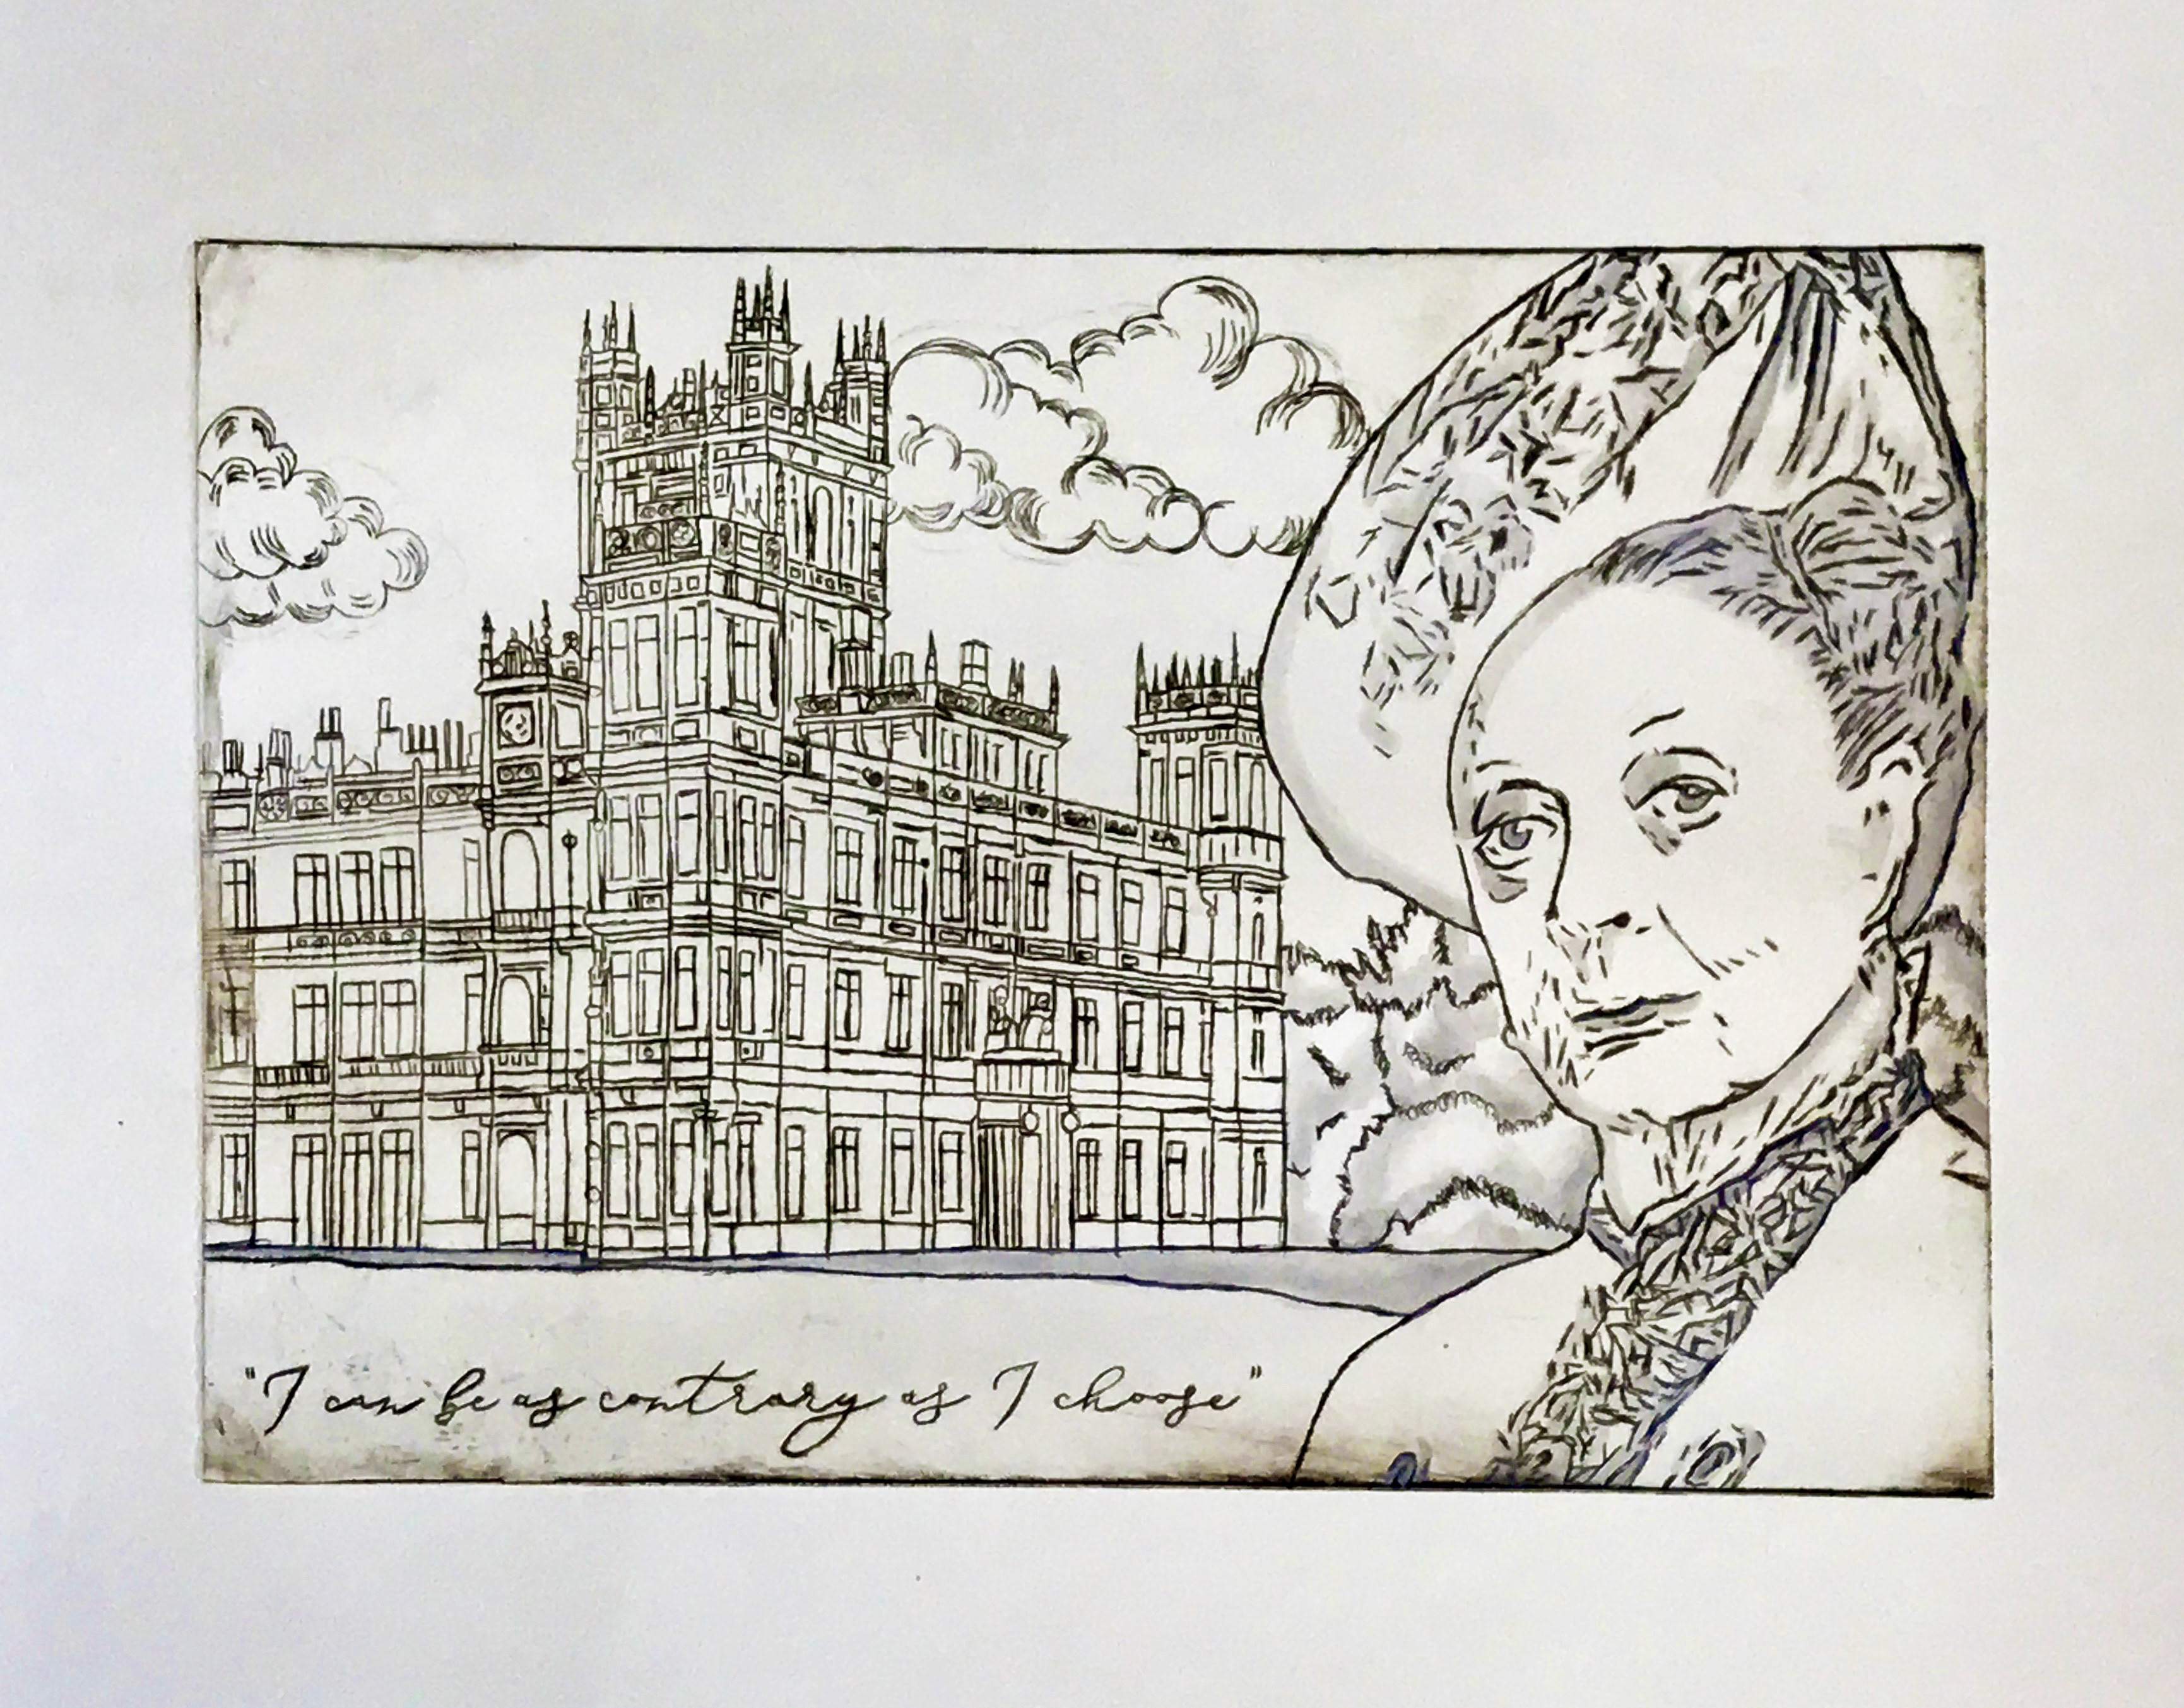 "I can be as contrary as I choose"